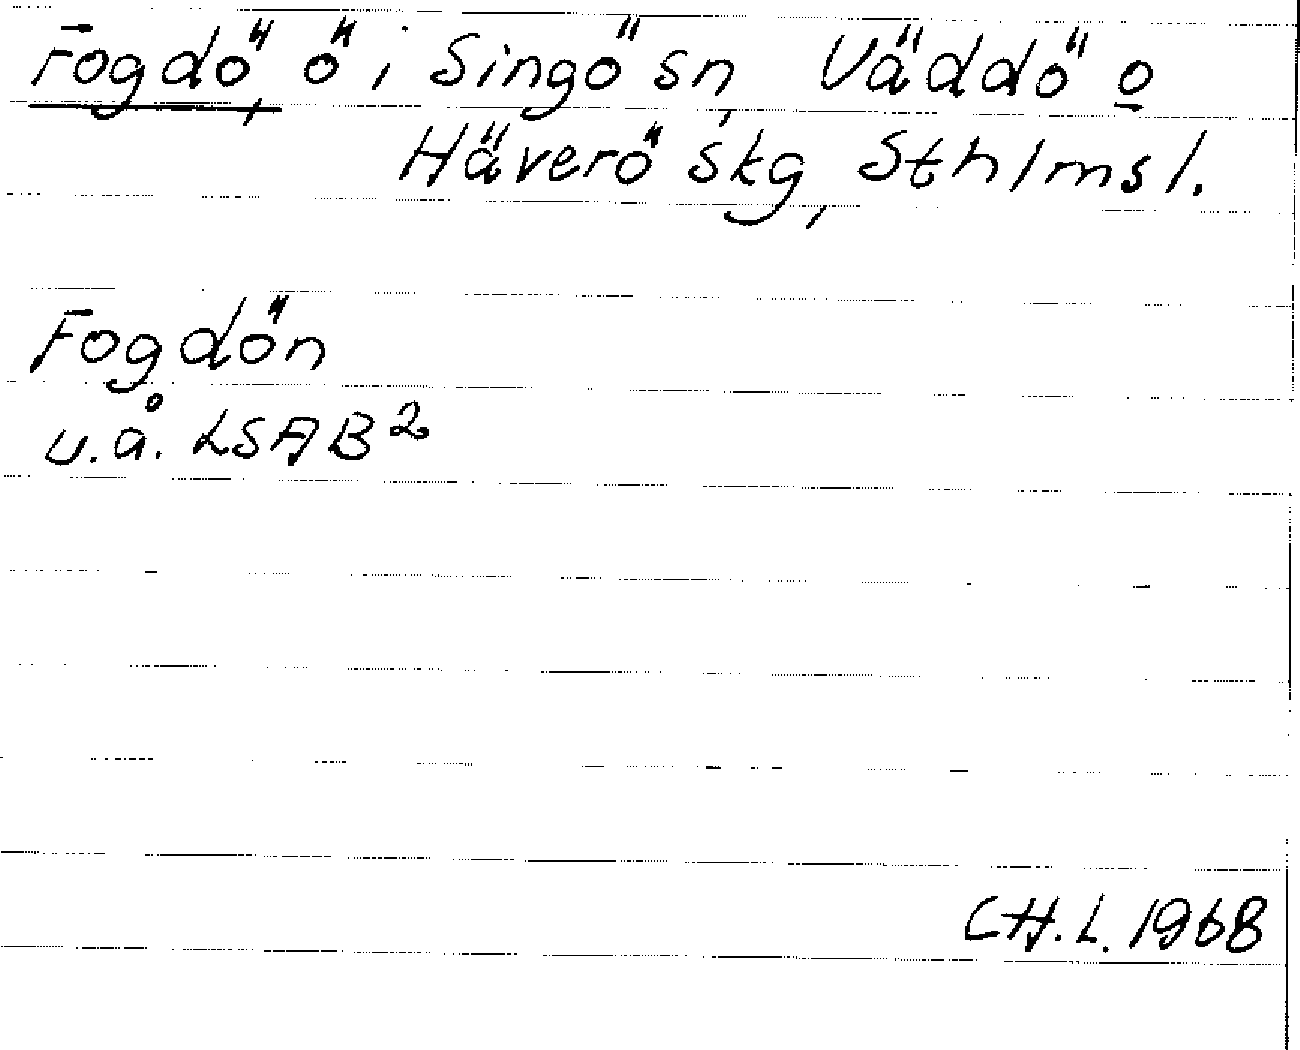 Fogdö, ö i Singö sn, Väddö o
Häverö skg, Sthlms l.
Fogdön
u.å. LSAB²
CH.L. 1968